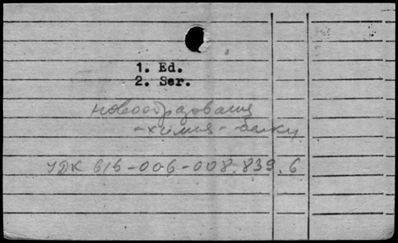 1. Ed.
2. Ser.
новообразования
-химия - белки
УДК 616-006-008.839.6